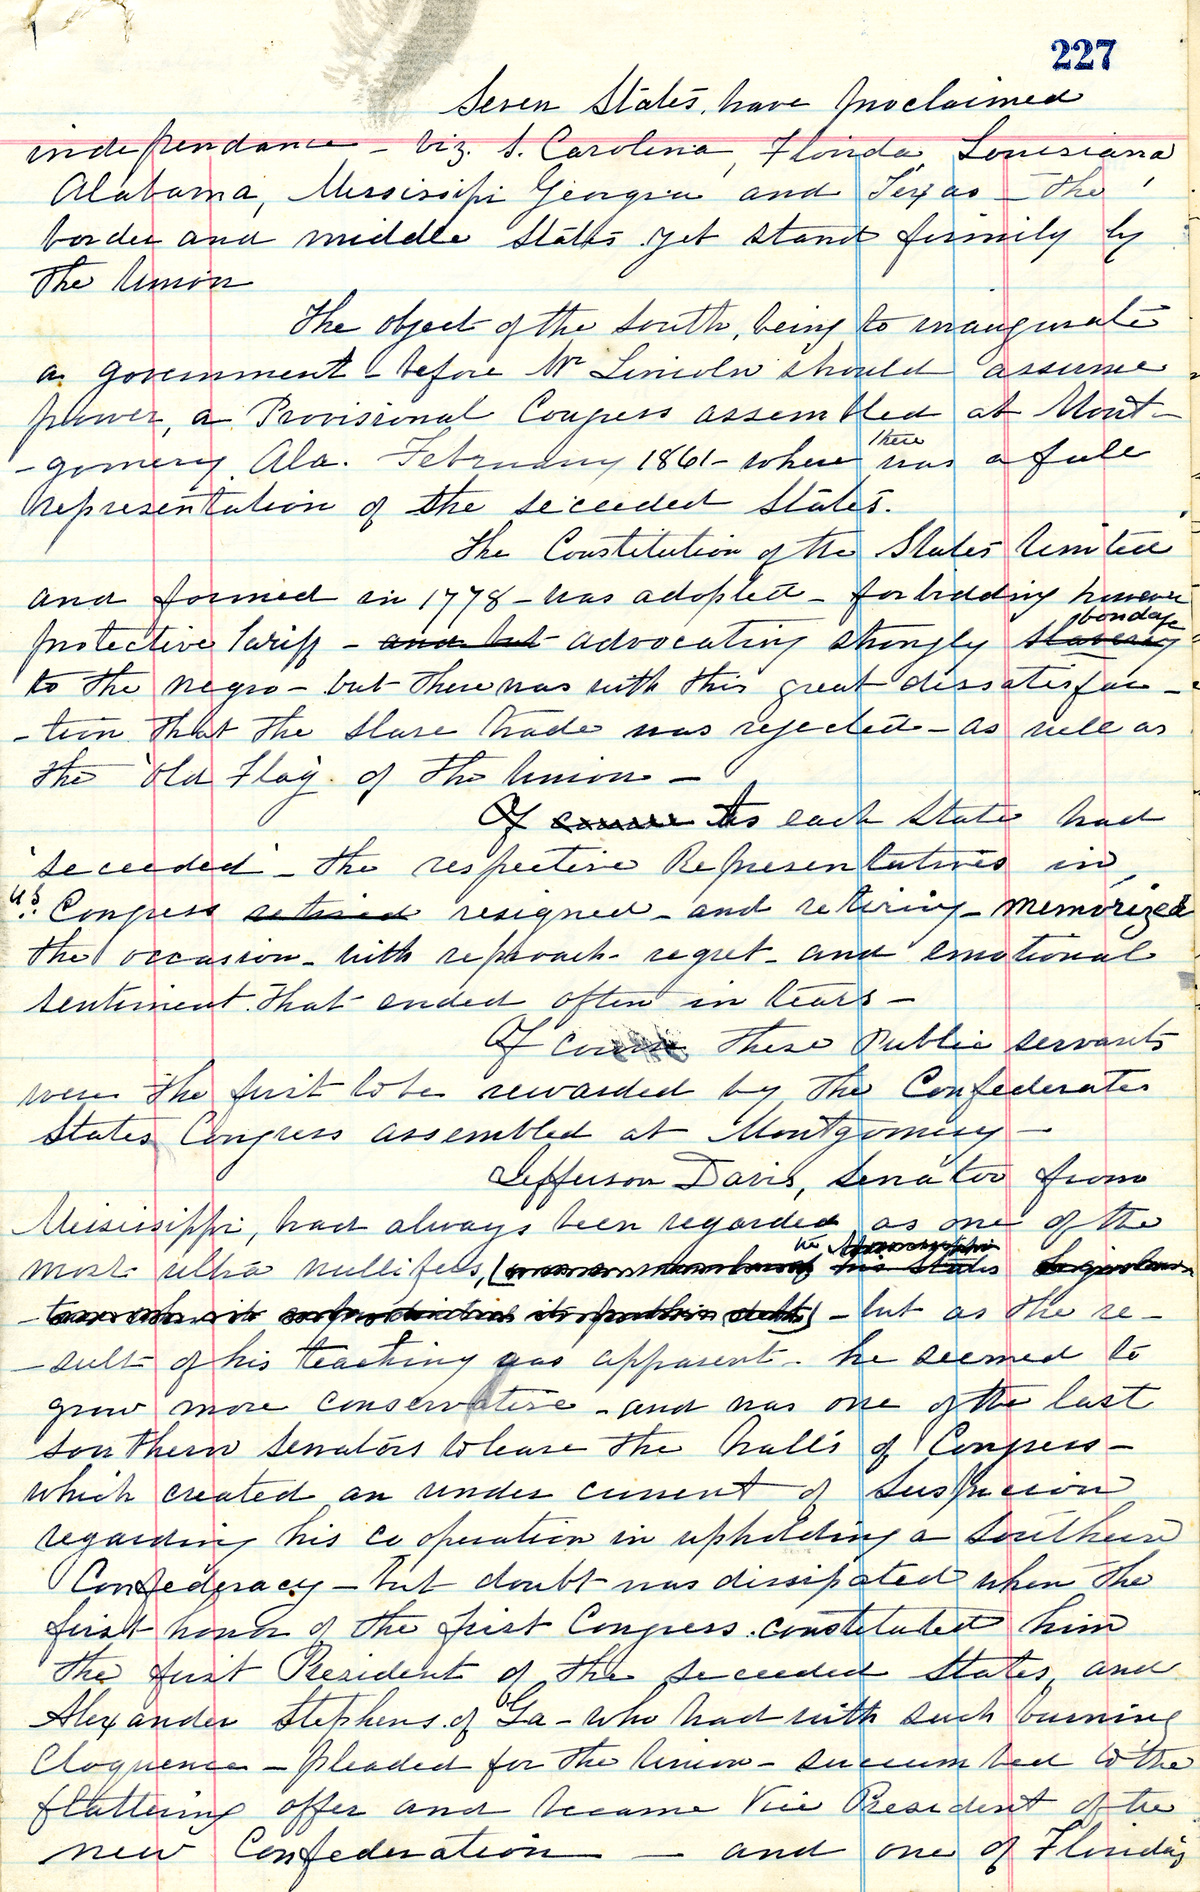 227
Seven States, have proclaimed
independance – viz. S. Carolina, Florida, Louisiana
Alabama, Mississipi Georgia and Texas – The
border and middle States yet stand firmily by
the Union
The object of the South, being to inaugurate
a government – before Mr Lincoln should assume
power, a Provisional Congress assembled at Mont-
-gomery Ala. February 1861 – where there was a full
representation of the seceeded States.
The Constitution of the States United
and formed in 1778 – was adopted – forbidding however
protective tariff – and but advocating strongly slavery bondage
to the negro – but there was with this great dissatisfac-
-tion that the slave trade was rejected – as well as
the "old Flag" of the Union –
Of course As each State had
"seceeded" – the respective Representatives in
U.S. Congress retired resigned – and retiring – memorized
the occasion – with reproach – regret – and emotional
sentiment that ended often in tears –
Of course these Public servants
were the first to be rewarded by the Confederates
States Congress assembled at Montgomery –
Jefferson Davis, Senator from
Mississippi, had always been regarded as one of the
most ultra nullifers, the his States
its public debt) – but as the re-
-sult of his teaching was apparent – he seemed to
grow more conservative – and was one of the last
southern senators to leave the halls of Congress –
which created an under current of suspicion
regarding his cooperation in upholding a Southern
Confederacy – but doubt was dissipated when the
first honor of the first Congress constituted him
the first President of the seceeded States, and
Alexander Stephens of Ga – who had with such burning
Eloquence – pleaded for the Union – succumbed to the
flattering offer and became Vice President of the
new Confederation – and one of Florida's